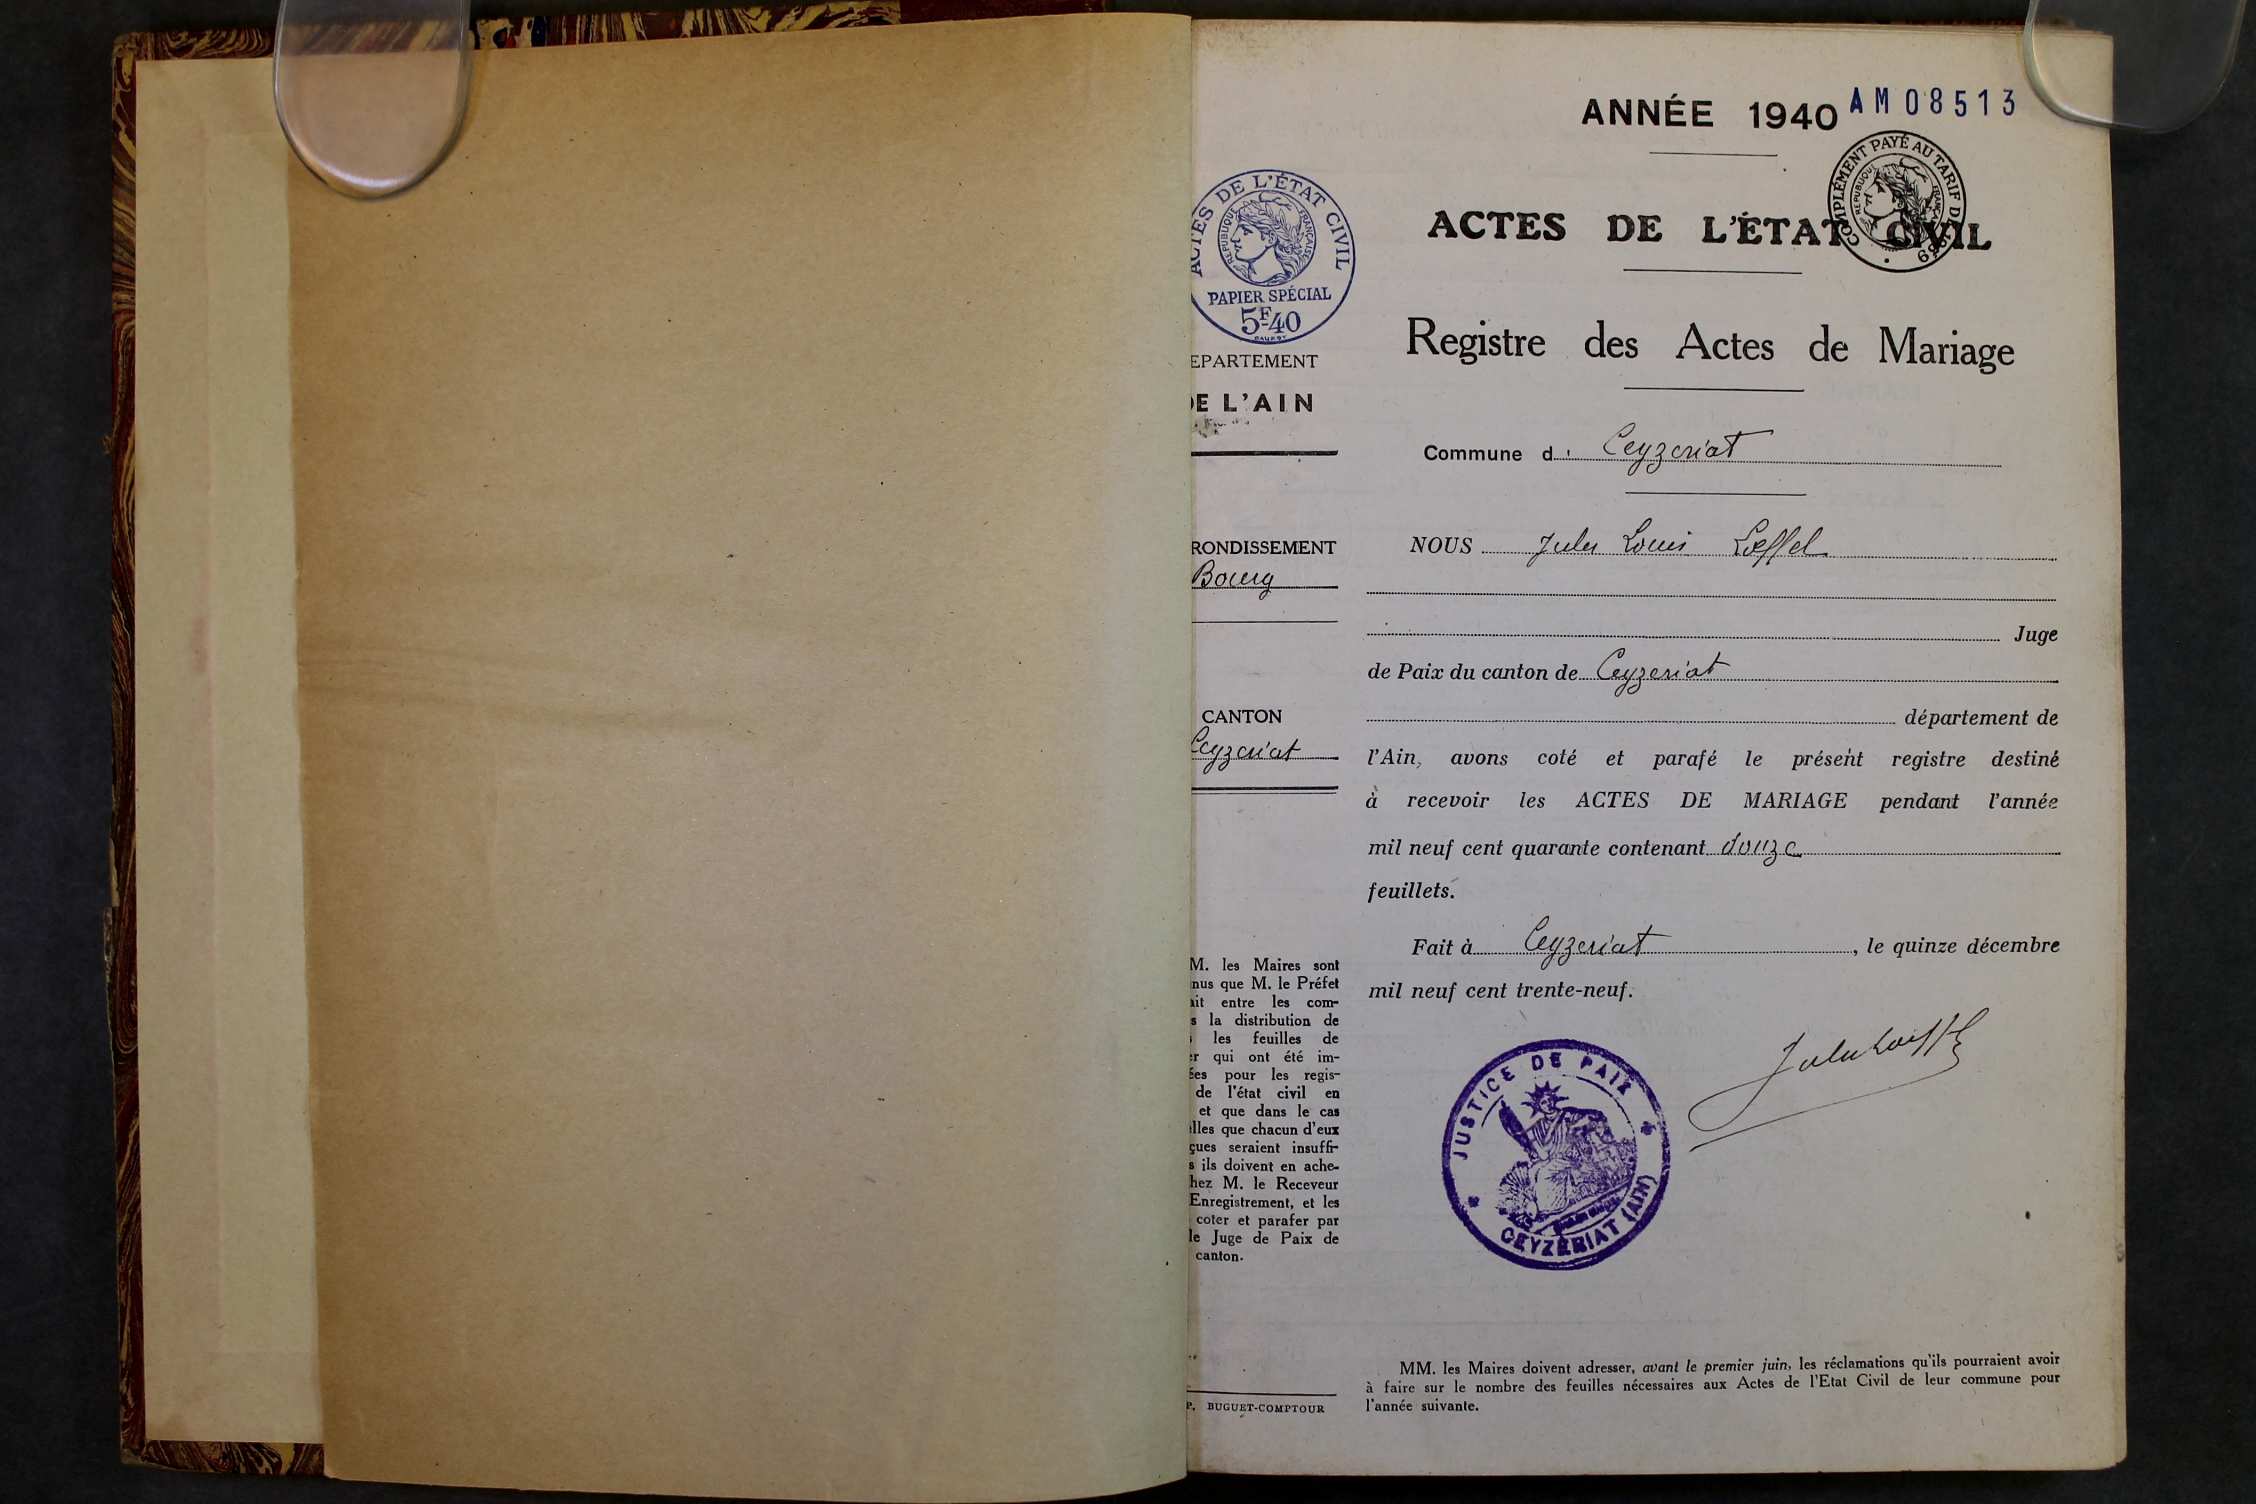 ANNÉE 1940
AM08513
COMPLÉMENT PAYÉ AU TARIF DE 1939
RÉPUBLIQUE FRANÇAISE
ACTES DE L'ÉTAT CIVIL
Registre des Actes de Mariage
Commune d ' Ceyzeriat
NOUS Jules Louis Lœffel
Juge
de Paix du canton de Ceyzeriat
département de
l'Ain, avons coté et parafé le présent registre destiné
à recevoir les ACTES DE MARIAGE pendant l'année
mil neuf cent quarante contenant douze
feuillets.
Fait à Ceyzeriat, le quinze décembre
mil neuf cent trente-neuf.
JUSTICE DE PAIX
CEYZÉRIAT (AIN)
MM. les Maires doivent adresser, avant le premier juin, les réclamations qu'ils pourraient avoir
à faire sur le nombre des feuilles nécessaires aux Actes de l'Etat Civil de leur commune pour
l'année suivante.
ACTES DE L'ÉTAT CIVIL
RÉPUBLIQUE FRANÇAISE
PAPIER SPÉCIAL
5F40
EPARTEMENT
DE L'AIN
RONDISSEMENT
Bourg
CANTON
Ceyzeriat
M. les Maires sont
nus que M. le Préfet
ait entre les com-
s la distribution de
les feuilles de
er qui ont été im-
ées pour les regis-
de l'état civil en
et que dans le cas
elles que chacun d'eux
çues seraient insuffi-
s ils doivent en ache-
hez M. le Receveur
Enregistrement, et les
coter et parafer par
le Juge de Paix de
canton.
P. BUGUET-COMPTOUR